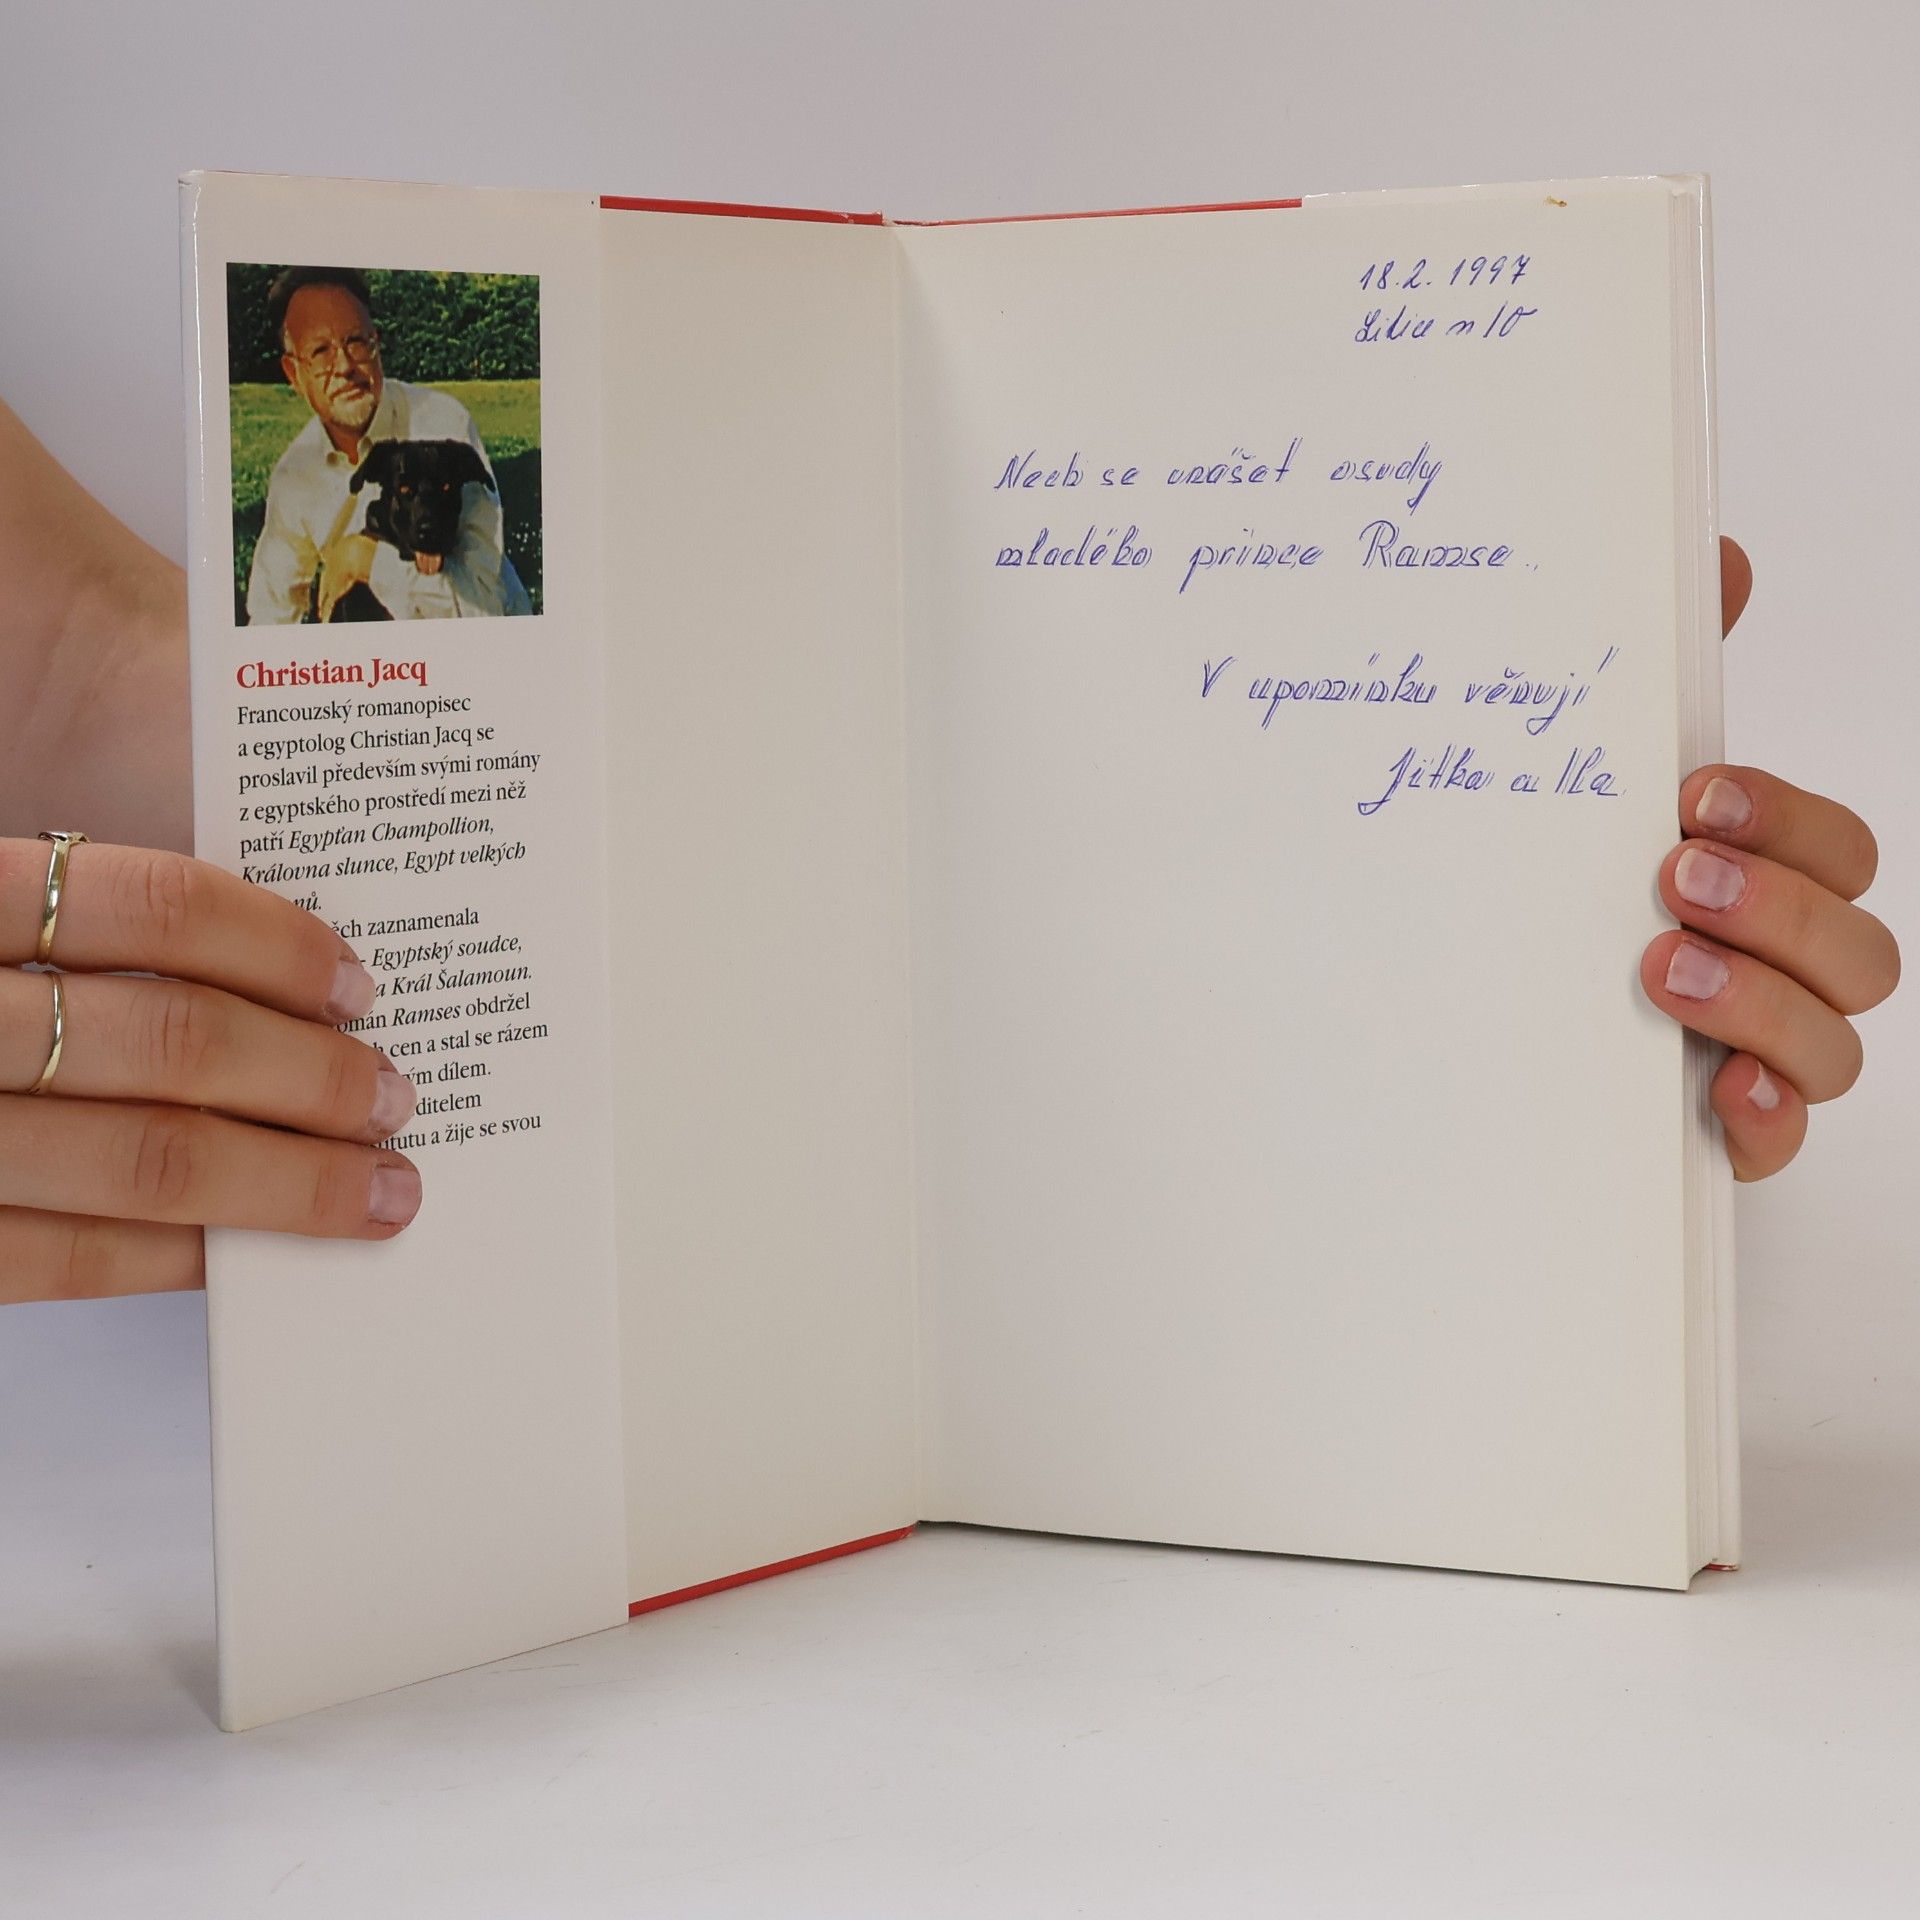 Christian Jacq
Francouzský romanopisec
a egyptolog Christian Jacq se
proslavil především svými romány
z egyptského prostředí mezi něž
patří Egypťan Champollion,
Královna slunce, Egypt velkých
zaznamenala
- Egyptský soudce,
a Král Šalamoun.
Ramses obdržel
cen a stal se rázem
dílem.
a žije se svou
18.2. 1997
Nech se unášet osudy
mladého prince Ramse.
V upomínku věnují
Jitka a